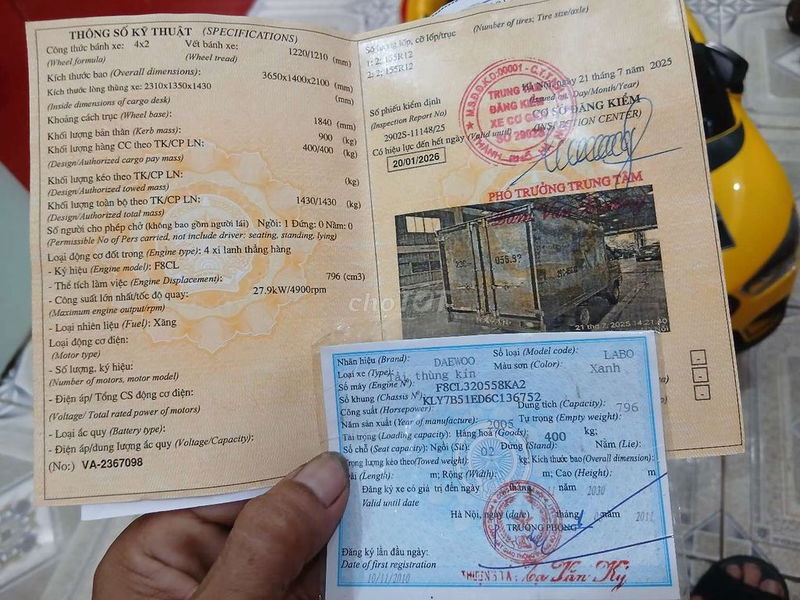 THÔNG SỐ KỸ THUẬT (SPECIFICATIONS)
Công thức bánh xe: 4x2 Vết bánh xe: 1220/1210 (mm)
(Wheel formula) (Wheel tread)
Kích thước bao (Overall dimensions): 3650x1400x2100 (mm)
Kích thước lòng thùng xe: 2310x1350x1430 (mm)
(Inside dimensions of cargo desk)
Khoảng cách trục (Wheel base): 1840 (mm)
Khối lượng bản thân (Kerb mass): 900 (kg)
Khối lượng hàng CC theo TK/CP LN: 400/400 (kg)
(Design/Authorized cargo pay mass)
Khối lượng kéo theo TK/CP LN: (kg)
(Design/Authorized towed mass)
Khối lượng toàn bộ theo TK/CP LN: 1430/1430 (kg)
(Design/Authorized total mass)
Số người cho phép chở (không bao gồm người lái) Ngồi: 1 Đứng: 0 Nằm: 0
(Permissible No of Pers carried, not include driver: seating, standing, lying)
Loại động cơ đốt trong (Engine type): 4 xi lanh thẳng hàng
- Ký hiệu (Engine model): F8CL
- Thể tích làm việc (Engine Displacement): 796 (cm3)
- Công suất lớn nhất/tốc độ quay: 27.9kW/4900rpm
(Maximum engine output/rpm)
- Loại nhiên liệu (Fuel): Xăng
Loại động cơ điện:
(Motor type)
- Số lượng, ký hiệu:
(Number of motors, motor model)
- Điện áp/ Tổng CS động cơ điện:
(Voltage/ Total rated power of motors)
- Loại ắc quy (Battery type):
- Điện áp/dung lượng ắc quy (Voltage/Capacity):
(No:) VA-2367098
Số lượng lốp, cỡ lốp/trục
(Number of tires; Tire size/axle)
1: 2; 155R12
2: 2; 155R12
Hà Nội, ngày 21 tháng 7 năm 2025
(Issued on: Day/Month/Year)
Số phiếu kiểm định
(Inspection Report No)
2902S-11148/25
CƠ SỞ ĐĂNG KIỂM
(INSPECTION CENTER)
Có hiệu lực đến hết ngày (Valid until)
20/01/2026
M.S.D.Đ.K.D:00001 - C.T.T
TRUNG TÂM
ĐĂNG KIỂM
XE CƠ GIỚI
SỐ 2902S
PHÓ TRƯỞNG TRUNG TÂM
21 thg 7, 2025 14:21:40
chợTỐT
Nhãn hiệu (Brand): DAEWOO Số loại (Model code): LABO
Loại xe (Type): Tải thùng kín Màu sơn (Color): Xanh
Số máy (Engine N°): F8CL320558KA2
Số khung (Chassis N°): KLY7B51ED6C136752
Công suất (Horsepower): Dung tích (Capacity): 796
Năm sản xuất (Year of manufacture): 2006 Tự trọng (Empty weight):
Tải trọng (Loading capacity): Hàng hoá (Goods): 400 kg;
Số chỗ (Seat capacity): Ngồi (Sit): 02 Đứng (Stand): Nằm (Lie):
Trọng lượng kéo theo (Towed weight): kg; Kích thước bao (Overall dimension):
Dài (Length): m; Rộng (Width): m; Cao (Height): m
Đăng ký xe có giá trị đến ngày tháng năm 2030
Valid until date
Hà Nội, ngày (date) tháng năm 2011
TRƯỞNG PHÒNG
Đăng ký lần đầu ngày:
Date of first registration
10/11/2010
Tạ Văn Kỳ